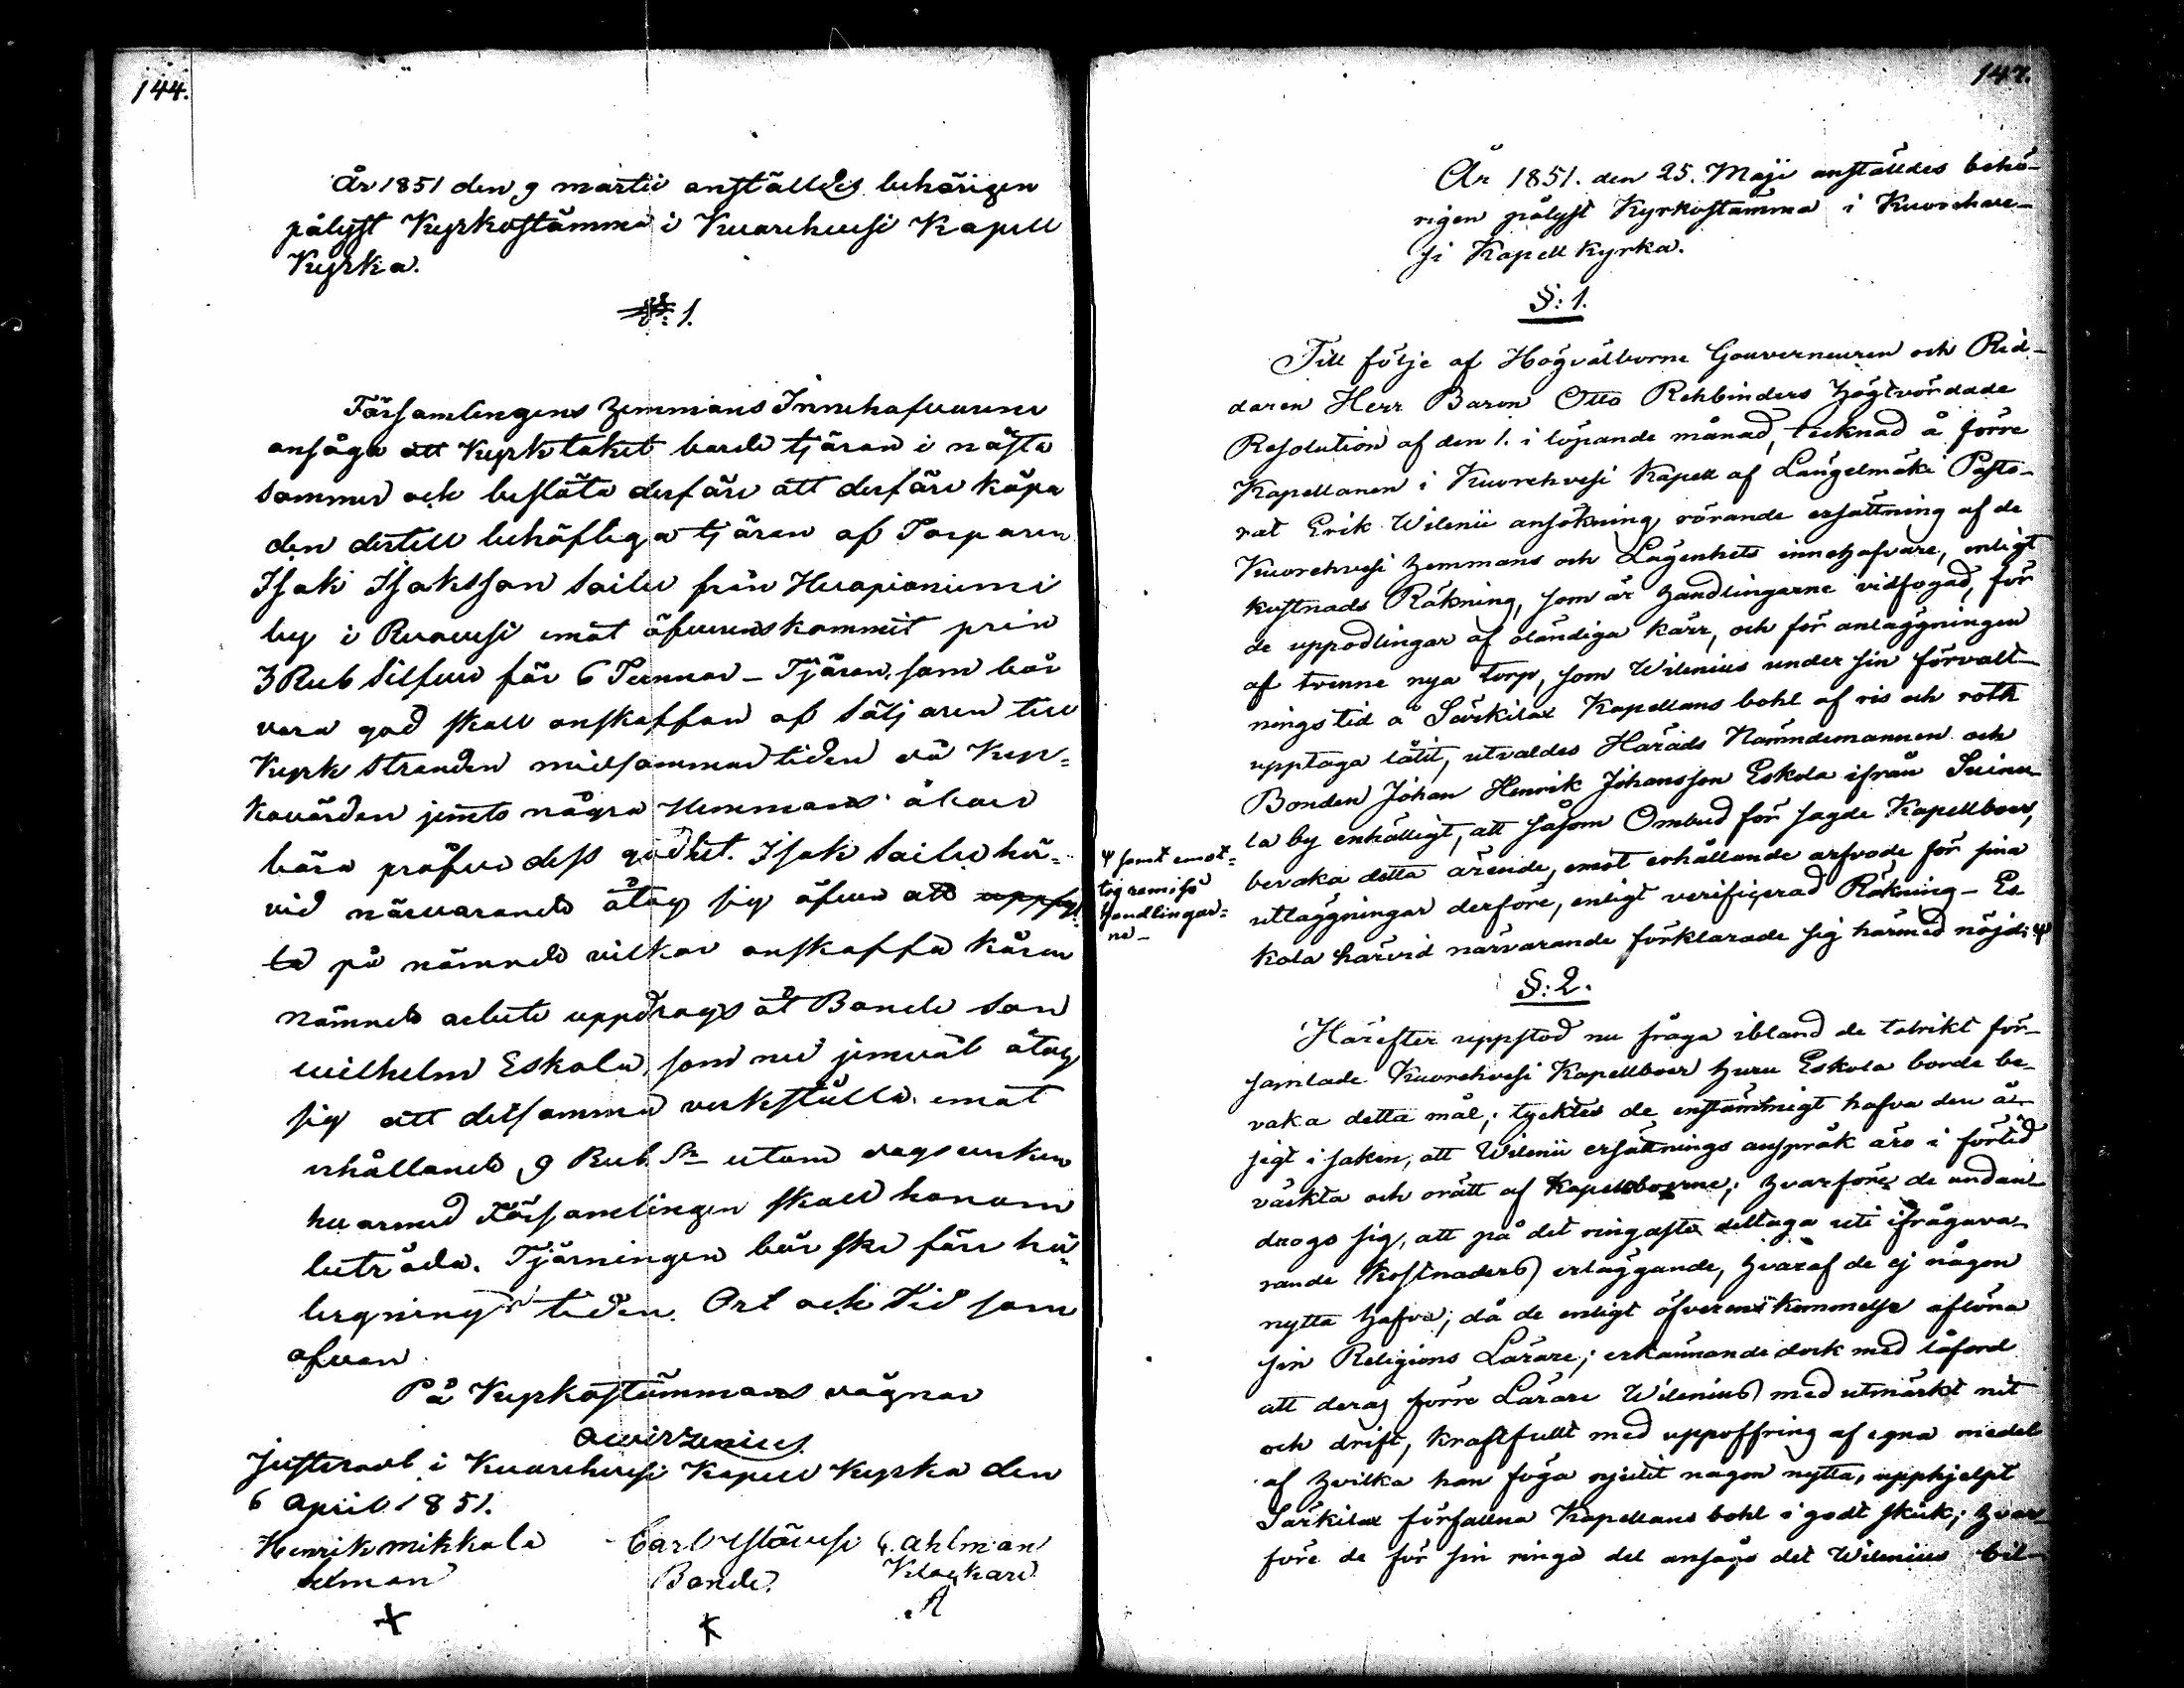 144.
År 1851 den 9 martii anställdes behörigen
pålyst Kyrkostämma i Kuorehvesi Kapell
Kyrka.
§: 1.
Församlingens Hemmans Innehafvarene
ansågo att Kyrktaket borde tjäran i nästa
sommar och beslöto derföre att derföre köpa
den dertill behöfliga tjäran af Torparen
Isak Isaksson Sailu från Haapaniemi
by i Ruovesi emot öfverenskommit pris
3 Rub Silfver för 6 Tunnor - Tjäran, som bör
vara god skall anskaffas af Säljaren till
Kyrk stranden midsommar tiden då Kyr=
kovärden jemte några Hemmans åboer
böra pröfva dess godhet. Isak Sailu här=
vid närvarande åtog sig äfven att uppfyl
la på nämnde vilkor anskaffa käran
nämnde arbete uppdrogs åt Bonde Son
Wilhelm Eskola, som nu jemväl åtog
sig att detsamma verkställa emot
erhållande 9 Rub Sr utom dagsverken
hvarmed Församlingen skall honom
biträda. Tjärningen bör ske före hö=
bergnings tiden. Ort och tid som
ofvan
På Kyrkostämmans vägnar
A Wirzenius
Justerad i Kuorehvesi Kapell Kyrka den
6 April 1851.
Henrik Mikkola Carl Ustävesi G. Ahlman
sexman Bonde. Klockare
147.
År 1851. den 25. Maji anställdes behö-
rigen pålyst Kyrkostämma i Kuoreheve-
si Kapell Kyrka.
§: 1.
Till följe af Högvälborne Gouverneuren och Rid-
daren Herr Baron Otto Rehbinders Högtvördade
Resolution af den 1. i löpande månad, tecknad å förre
Kapellanen i Kuorehvesi Kapell af Längelmäki Pasto-
rat Erik Wilenii ansökning rörande ersättning af de
Kuorehvesi Hemmans och Lägenhets innehafvare, enligt
kostnads Räkning, som är handlingarne vidfogad, för
de uppodlingar af oländiga kärr, och för anläggningen
af trenne nya torp, som Wilenius under sin förvalt-
nings tid å Särkilax Kapellans bohl af ris och roth
upptaga låtit, utvaldes Härads Nämndemannen och
Bonden Johan Henrik Johansson Eskola ifrån Suinu-
la by enhälligt, att såsom Ombud för sagde Kapellboer,
bevaka detta ärende, emot erhållande arfvode för sina
utläggningar derföre, enligt verificerad Räkning - Es
kola härvid närvarande förklarade sig härmed nöjd: Ψ
Ψ samt emot=
tog remiss
handlingar=
ne -
§: 2.
Härefter uppstod nu fråga ibland de talrikt för-
samlade Kuorehvesi Kapellboer huru Eskola borde be-
vaka detta mål; tycktes de enstämmigt hafva den å-
sigt i saken, att Wilenii ersättnings anspråk äro i förtid
väckta och orätt af Kapellboerne; hvarföre de undan-
drogo sig, att på det ringaste deltaga uti ifrågava-
rande kostnaders erläggande, hvaraf de ej någon
nytta hafva; då de enligt öfverenskommelse aflöna
sin Religions Lärare; erkännande dock med låford
att deras förre Lärare Wilenius med utmärkt nit
och drift, kraftfullt med uppoffring af egna medel
af hvilka han föga njutit någon nytta, upphjelpt
Särkilax förfallna Kapellans bohl i godt skick; hvar-
före de för sin ringa del ansågo det Wilenius bil-